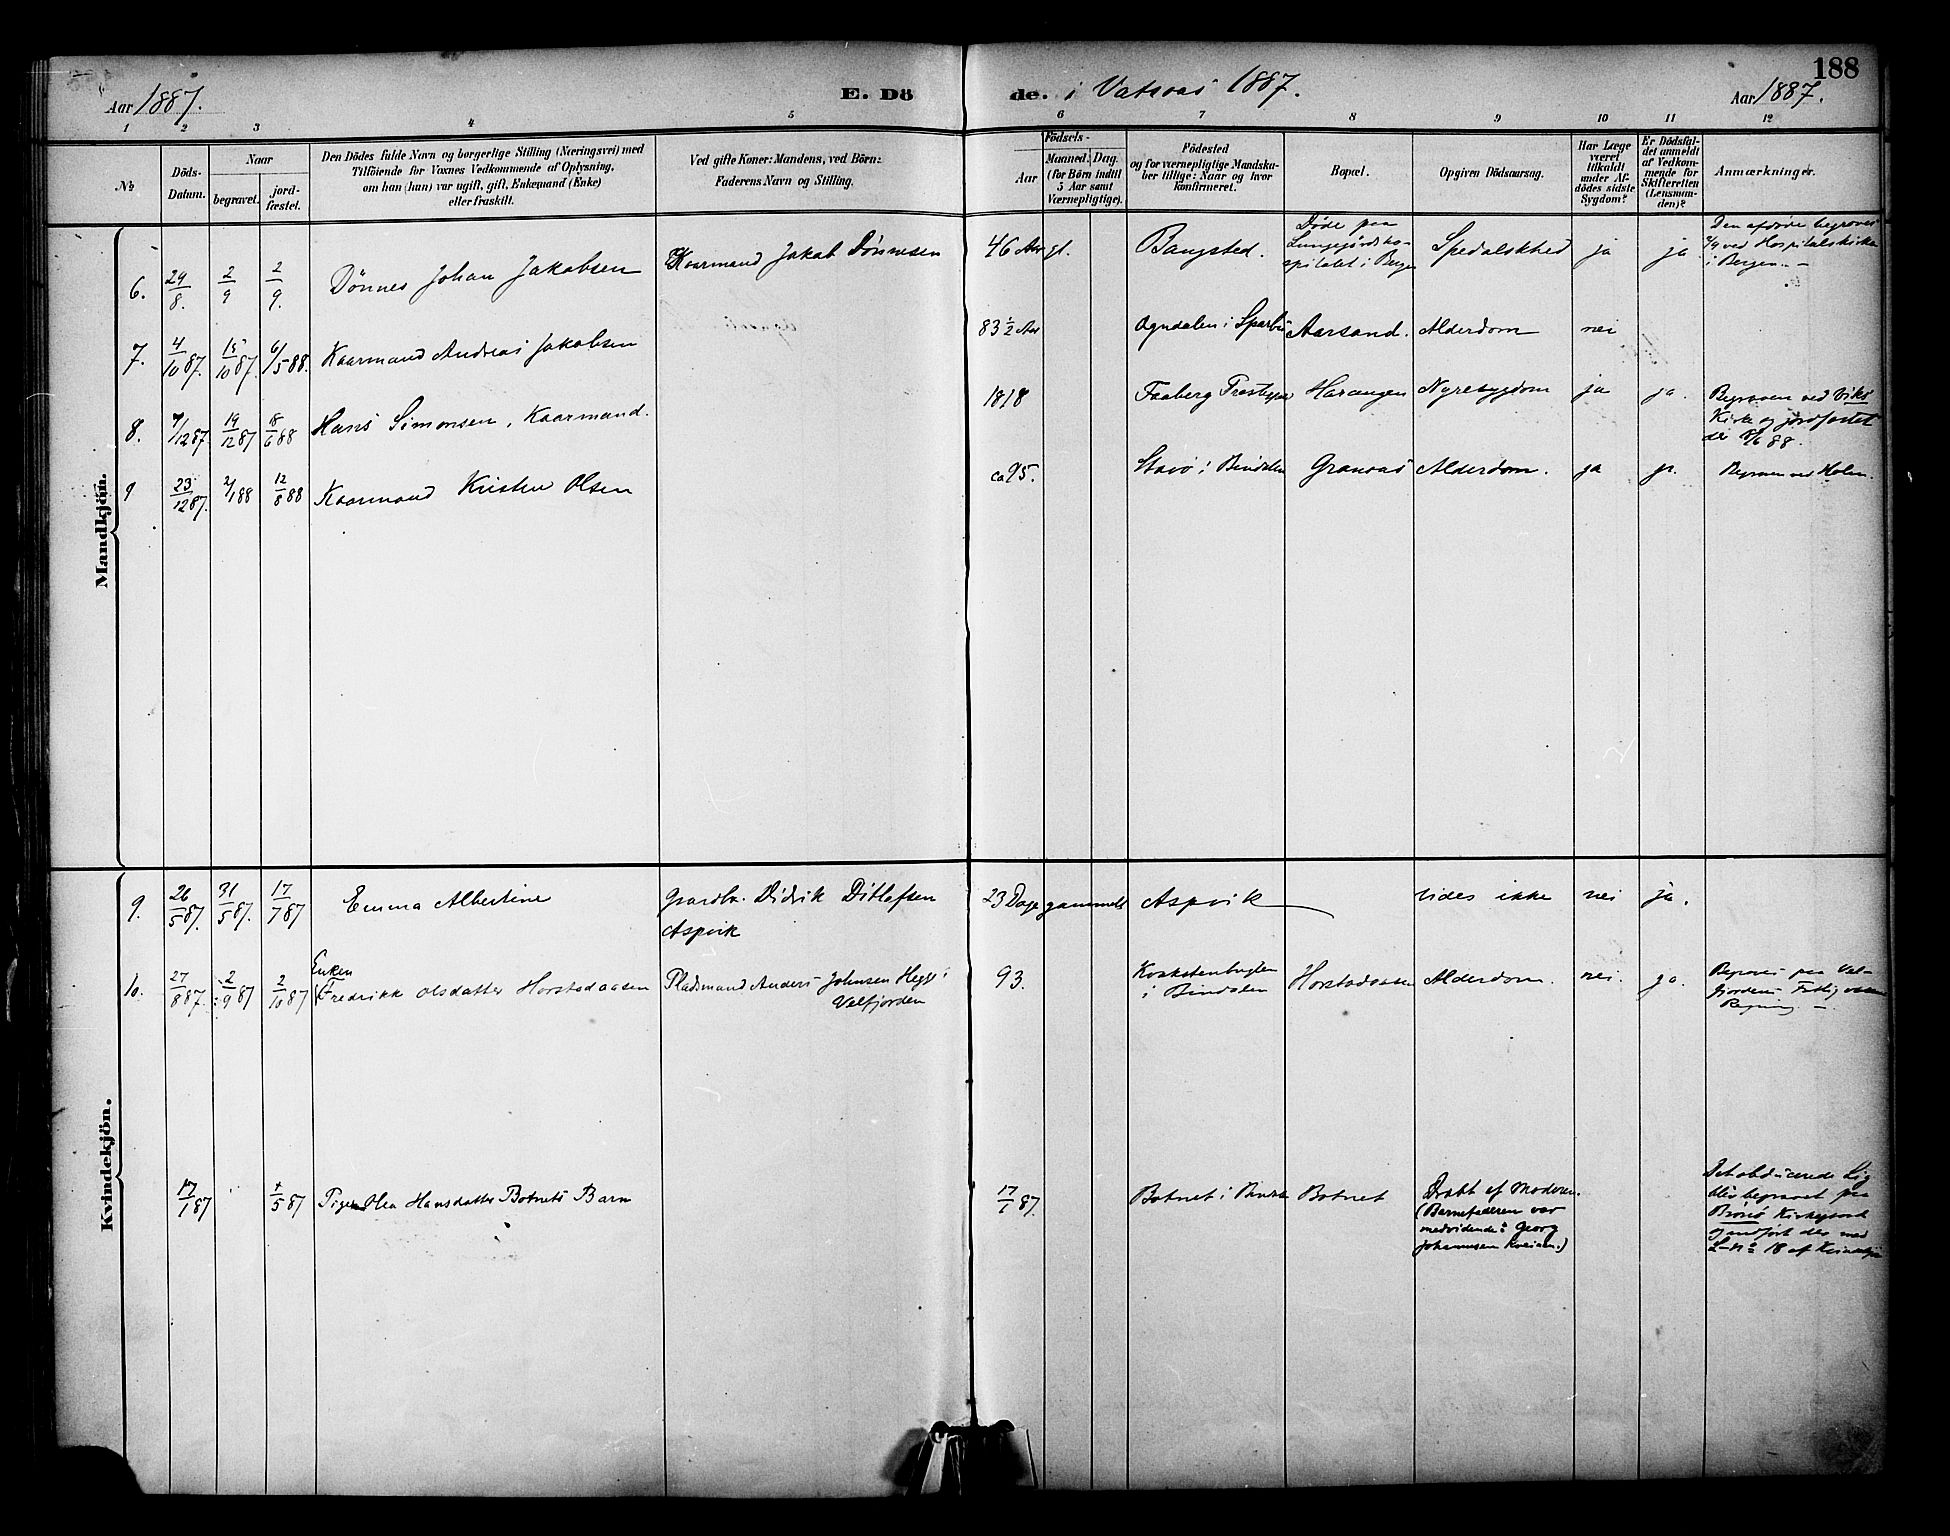 188
Aar 1887.
E. Dö
de. i Vatsaas 1887.
Aar 1887.
1 2 3 4 5 6 7 8 9 10 11 12
№
Döds-
Datum.
Naar
begravet.
jord-
fæstet.
Den Dödes fulde Navn og borgerlige Stilling (Næringsvei) med
Tilföiende for Voxnes Vedkommende af Oplysning,
om han (hun) var ugift, gift, Enkemand (Enke)
eller fraskilt.
Ved gifte Koner: Mandens, ved Börn:
Faderens Navn og Stilling.
Födsels-
Aar
Maaned. Dag.
(for Börn indtil
5 Aar samt
Værnepligtige).
Födested
og for værnepligtige Mandska-
ber tillige: Naar og hvor
konfirmeret.
Bopæl.
Opgiven Dödsaarsag.
Har Læge
været
tilkaldt
under Af-
dödes sidste
Sygdom?
Er Dödsfal-
det anmeldt
af Vedkom-
mende for
Skifteretten
(Lensman-
den)?
Anmærkninger.
Mandkjön.
6. 29/8. 2/9 2/9. Dönnes Johan Jakobsen Kaarmand Jakob Dönnesen 46 Aar gl. Bangsted. Døde paa Lungegårdsho-spitalet i Bergen Spedalskhed ja ja Den afdøde begroves 2/9 ved Hospitalskirke i Bergen. —
7. 4/10 87. 15/10 87. 6/5 88. Kaarmand Andreas Jakobsen 83 1/2 Aar Ogndalen i Sparbu Aarsand. Alderdom nei
8. 7/12 87. 19/12 87 18/6 88 Hans Simonsen, Kaarmand. 1818 Faaberg Prestegj Harangen Nyresygdom ja ja. Begraven ved Viks Kirke og jordfæstet der 18/6 88.
9 23/12 87. 2/1 88 12/8 88 Kaarmand Kristen Olsen ca 95. i Bindalen Granaas Alderdom. ja ja. Begraven ved Holm.
Kvindekjön.
9. 26/5 87. 31/5 87. 17/7 87 Emma Albertine Gaardbr. Didrik Ditlefsen Aspvik 23 Dage gammelt Aspvik vides ikke nei ja.
10. 27/8 87. 2/9 87 2/10 87 Enken Fredrikk Olsdatter Horstadaasen Pladsmand Anders Johnsen Hegge i Velfjorden 93. i Bindalen Horstadaasen Alderdom. nei. ja. Begroves paa Vel-fjordens Fattigvæsens Regning —
17/1 87 4/5 87 Pigen Olea Hansdatter Botnets Barn 17/1 87. Botnet i Bindal Botnet Dræbt af Moderen. (Barnefaderen var medvidende: Georg Johannesen Kveien.) Det obducerede Lig blev begravet paa Brönö Kirkegaard og indført der med L-N° 18 af Kvindekjön